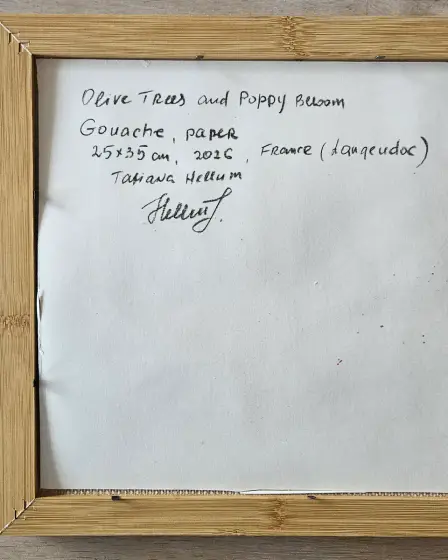 Olive Trees and Poppy Bloom
Gouache, paper
25x35 cm, 2026, France (Langeudoc)
Tatiana Hellum
Hellum T.